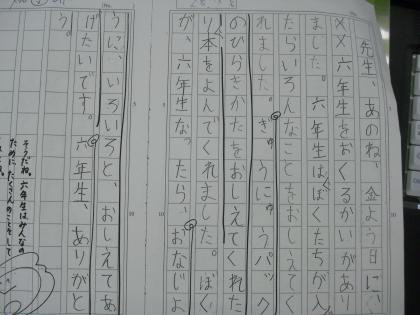 先生、あのね、金よう日に、
××六年生をおくるかいがあり
ました。六年生はぼくたちが入っ
たらいろんなことをおしえてく
れました。ぎゅうにゅうパック
のひらきかたをおしえてくれた
り本をよんでくれました。ぼく
が、六年生なったら、おなじよ
うに、いろいろと、おしえてあ
げたいです。六年生、ありがと
う。
そうだね。六年生はみんなの
ために、たくさんのことをして